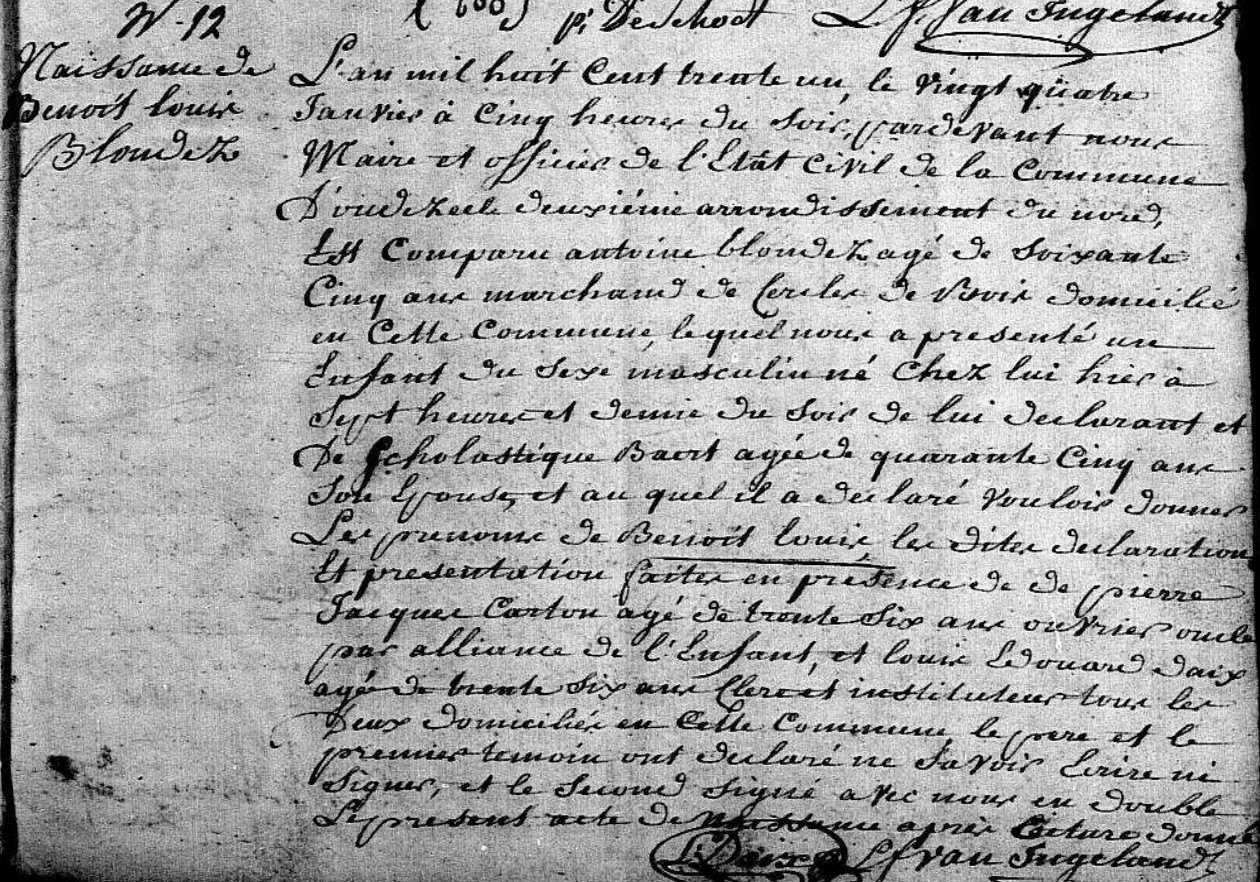 N. 12
p. De Schodt L f Van Ingelandt
Naissance de
Benoît louis
Blondez
L'an mil huit Cent trente un, le vingt quatre
Janvier à Cinq heures du soir, pardevant nous
Maire et officier de l'Etât Civil de la Commune
D'oudezeele deuxiéme arrondissement du nord,
Est Comparu antoine blondez agé de soixante
Cinq ans marchand de Cercles de Bois domicilié
en Cette Commune, le quel nous a presenté un
Enfant du sexe masculin né Chez lui hier à
sept heures et demie du soir de lui declarant et
De Scholastique Baert agée de quarante Cinq ans
son Epouse, et au quel il a declaré vouloir donner
Les prenoms de Benoît louis, les dites declaration
Et presentation faites en présence de de pierre
Jacques Carton agé de trente six ans ouvrier oncle
par alliance de l'Enfant, et louis Edouard daix
agé de trente six ans Clerc et instituteur tous les
Deux domiciliés en Cette Commune, le pere et le
premier temoin ont declaré ne savoir Ecrire ni
signer, et le second signé avec nous en double
Le present acte de naissance après Lecture donnée
L. Daix L f Van Ingelandt